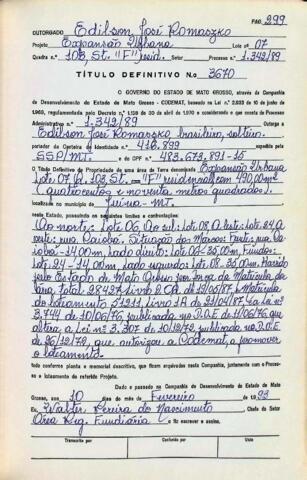 PAG. 299
OUTORGADO Edilson José Romaszko
Projeto Expansão Urbana Lote nº 07
Quadra n.º 103, St. "F" resid. Processo nº 1.342/89
TÍTULO DEFINITIVO No 3670
O GOVERNO DO ESTADO DE MATO GROSSO, através da Companhia
de Desenvolvimento do Estado de Mato Grosso - CODEMAT, com base na Lei nº 2.933 de 10 de
1969, regulamentada pelo Decreto nº 1.138 de 30 de abril de 1970 e considerando o que consta do Processo
Administrativo n.º 1.342/89 Outorga a
Edilson José Romaszko brasileiro, solteiro
portador da Carteira de Identidade n.º 416.899 expedida pela
SSP/MT. e do CPF nº 483.673.891-15
O Título Definitivo de Propriedade de uma área de Terra denominada Expansão Urbana
Lote: 07 Q. 103, St. "F" resid. 490,00m²
(quatrocentos e noventa metros quadrados).
localizada no município de Juína - MT.
neste Estado, possuindo os seguintes limites e confrontações:
Ao norte: Lote 06, Ao sul: Lote 08, A leste: Lote 24, A
oeste: rua Caiobá. Situação dos Marcos: Frente: rua Caio-
bá - 14,00m, Lado direito: Lote 06 - 35,00m, Fundos:
Lote: 24 - 14,00m, Lado esquerdo: Lote 08 - 35,00m.
pelo Estado de Mato Grosso Matrícula da
área total 28437 Livro 2 13/05/87, Matrícula
do Loteamento 51211 Livro 1A de 21/04/87. Lei nº
3.744 de 10/06/76, publicada no D.O.E de 11/06/76 que
altera a Lei nº 3.307 de 18/12/72, publicada no D.O.E.
de 26/12/72, que autorizou a Codemat, a promover
o loteamento.
tudo conforme planta e memorial descritivo, que ficam arquivados nesta Companhia, juntamente com o Processo
e o loteamento do referido Projeto.
Dado e passado na Companhia de Desenvolvimento do Estado de Mato
Grosso, aos 10 dias do mês de Fevereiro de 1.993
Eu Walter Pereira do Nascimento Chefe do Setor
Área Reg. Fundiária o fiz escrever e assino.
Transcrito por
Conferido por
Visto